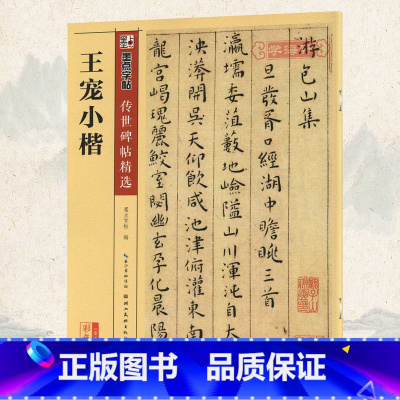 墨点字帖
传世碑帖精选
王宠小楷
墨点字帖 编
游包山集
旦發胥口經湖中瞻眺三首
瀛壖委菹藪地嶮隘山川渾沌自大
泱漭開吳天仰飲咸池津俯灌東南
龍宮嵑瑰麗鮫室閟幽玄孕化晨陽
学海